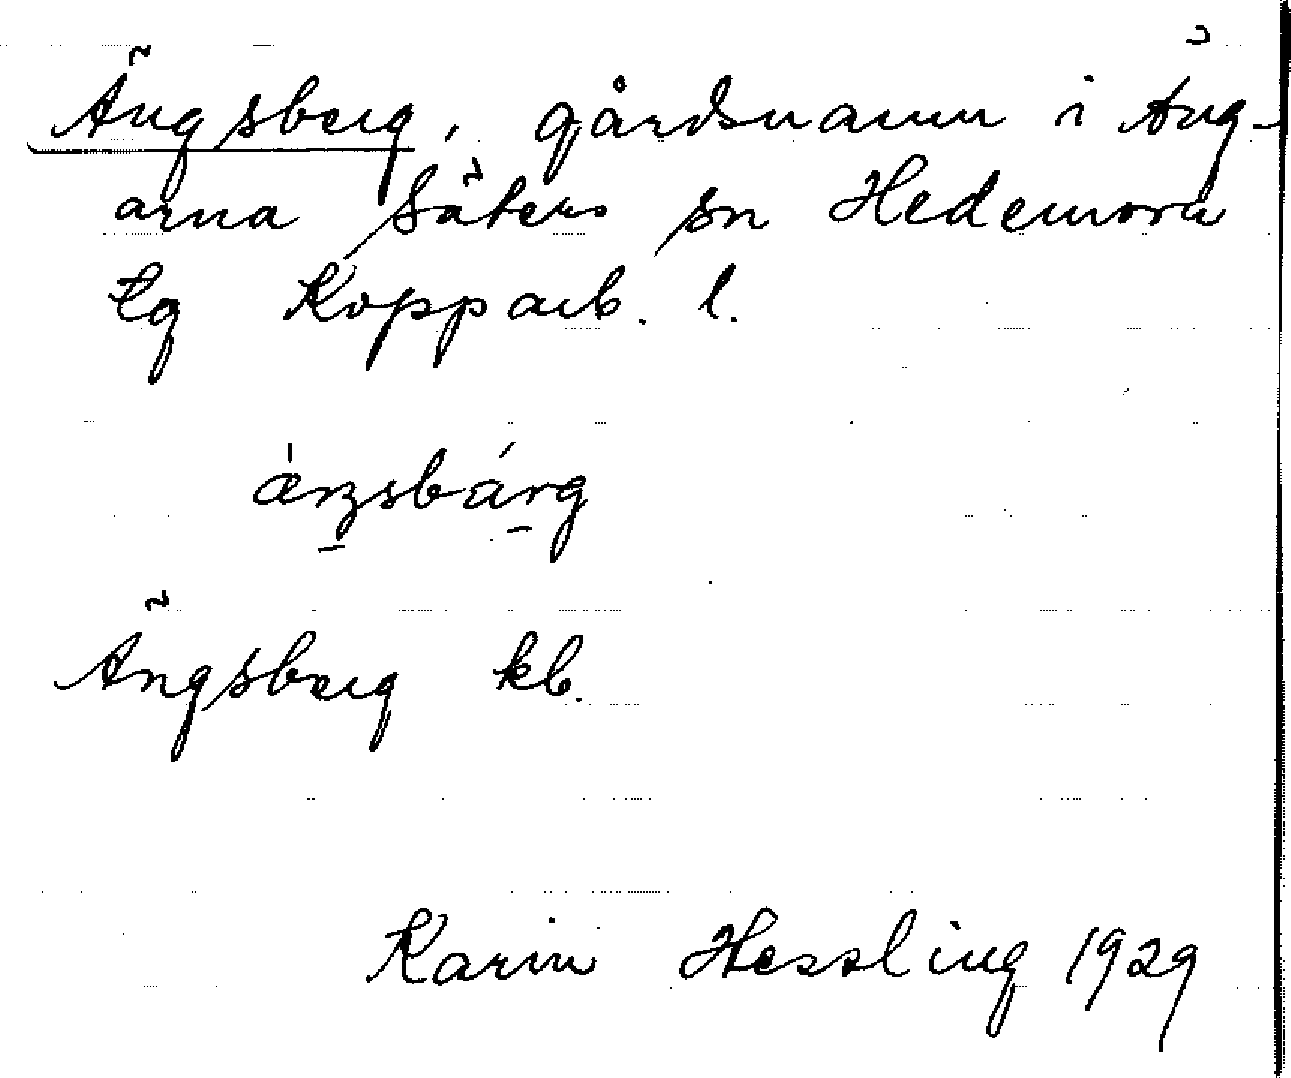 Ängsberg, gårdsnamn i Äng-
arna Säters sn Hedemora
tg Kopparb. l.
Ängsberg kb.
Karin Hessling 1929